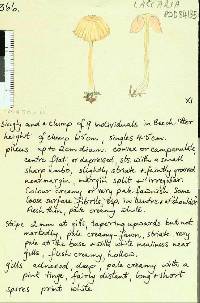 366.
LACCARIA
X1
Singly and a clump of 9 individuals in Beech litter
height of clump 6.5cm, singles 4.5cm.
pileus up to 2cm diam. convex or campanulate,
centre flat, or depressed, sts with a small
sharp umbo, slightly striate & faintly grooved
near margin. margin split & irregular.
Colour creamy or very pale fawnish. Some
loose surface fibrils esp in centre
flesh thin, pale creamy white.
stipe 2mm at gills, tapering upwards but not
markedly, pale creamy-fawn, striate very
pale at the base & with white mealiness near
gills, flesh creamy, hollow.
gills adnexed, deep, pale creamy with a
pink tinge, fairly distant, long & short
spores print white